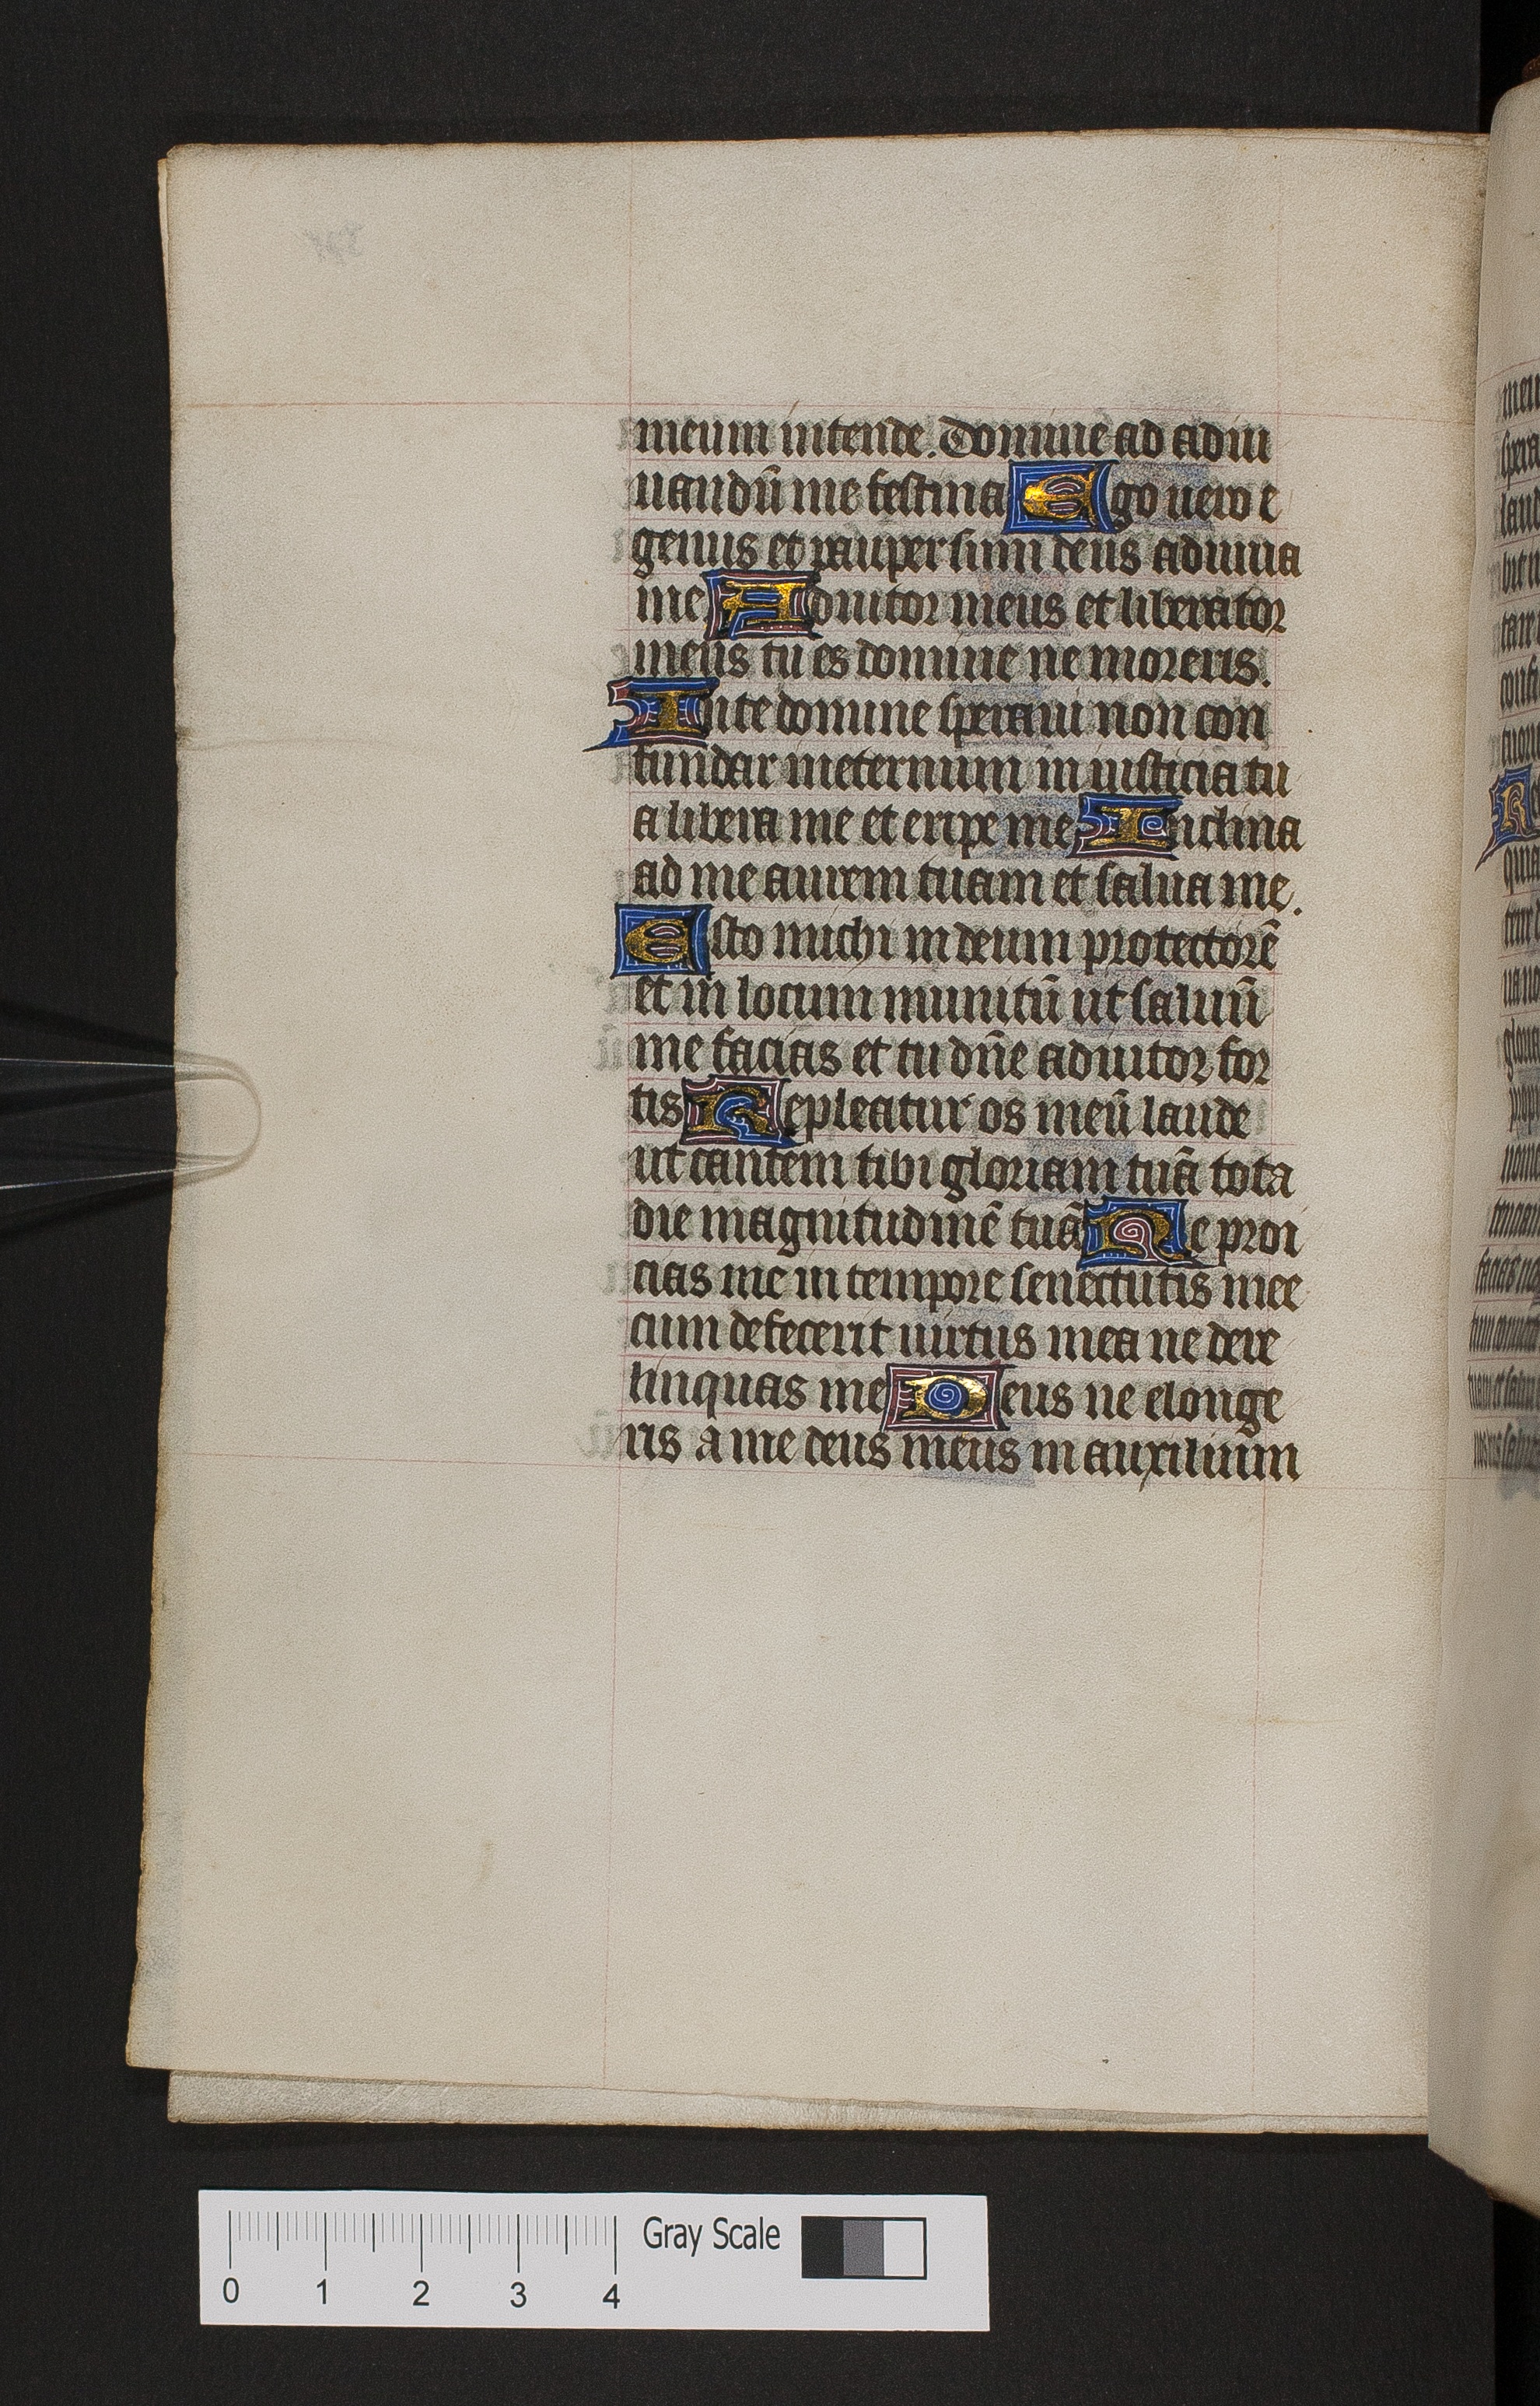 meum intende. Domine ad adiu
uandū me festina Ego uero e
genus et pauper sum deus adiuua
me Adiutor meus et liberator
meus tu es domine ne moreris.
In te domine speraui non con
fundar ineternum in iusticia tu
a libera me et eripe me Inclina
ad me aurem tuam et salua me.
Esto michi in deum protectorē
et in locum munitū ut saluū
me facias et tu dn̄e adiutor for
tis Repleatur os meū laude
ut cantem tibi gloriam tuā tota
die magnitudinē tuā Ne proi
cias me in tempore senectutis mee
cum defecerit uirtus mea ne dere
linquas me Deus ne elonge
ris a me deus meus in auxilium
Gray Scale
0 1 2 3 4